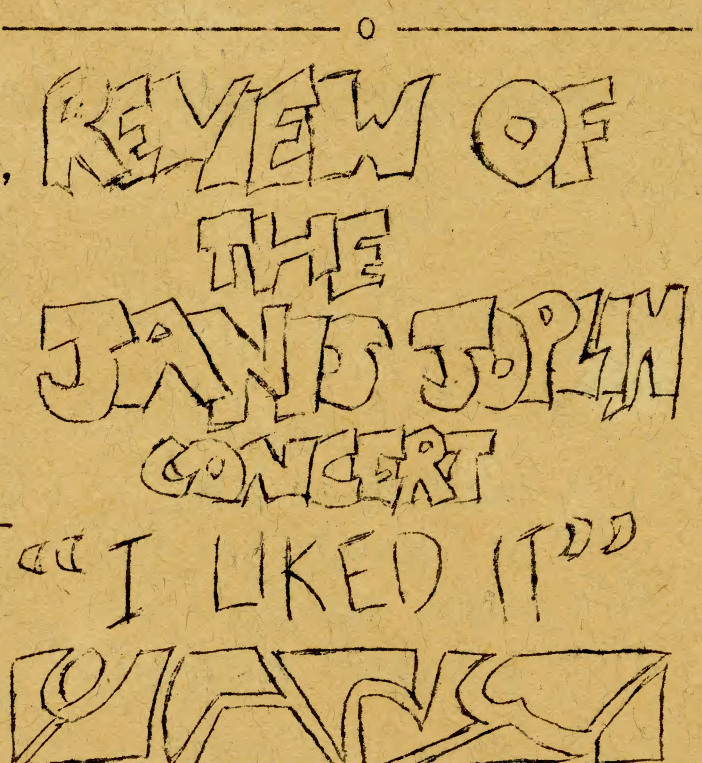 REVIEW OF
THE
JANIS JOPLIN
CONCERT
"I LIKED IT"